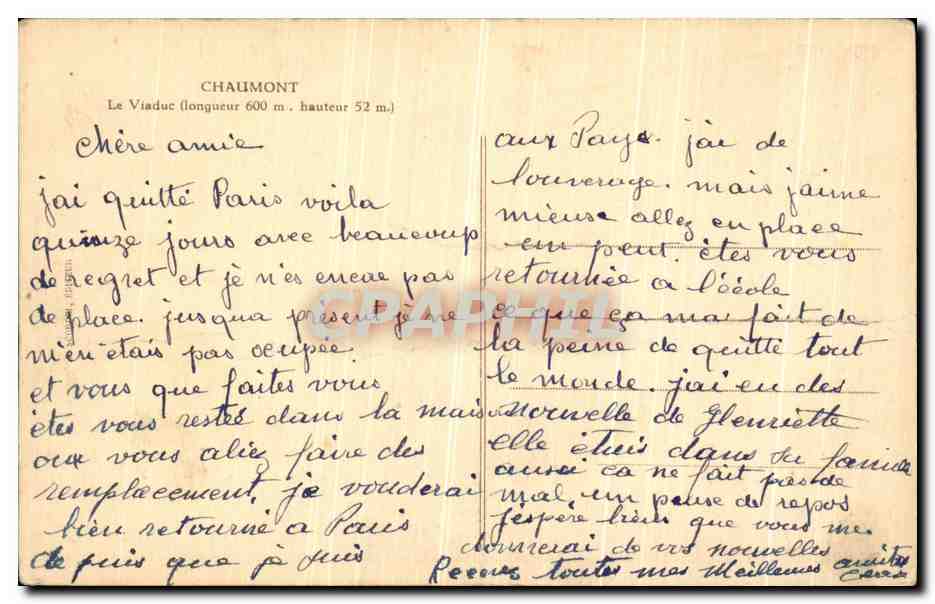 CHAUMONT
Le Viaduc (longueur 600 m. hauteur 52 m.)
Chère amie
jai quitté Paris voila
quinze jours avec beaucoup
de regret et je n'es encae pas
de place. jusqua présent je ne
m'en étais pas ocupée.
et vous que faites vous
êtes vous restée dans la mais
oux vous aliez faire des
remplacement. je vouderai
bien retourné a Paris
de puis que je suis
aux Pays. j'ai de
louverage. mais jaime
mieuse allez en place
un peut. êtes vous
retournée a l'école
ce que ça ma fait de
la peine de quitté tout
le monde. jai eu des
nouvelle de Henriette
elle étais dans sa famille
aussi ca ne fait pas de
mal, un peuse de repos
j'espère bien que vous me
donnerai de vos nouvelles
Recevez toutes mes Meillemes amities
CPAPHIL